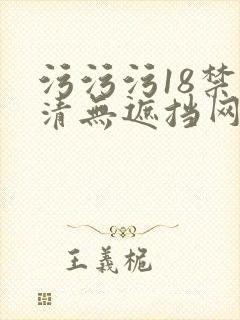 污污污18禁
清無遮挡网
王義桅